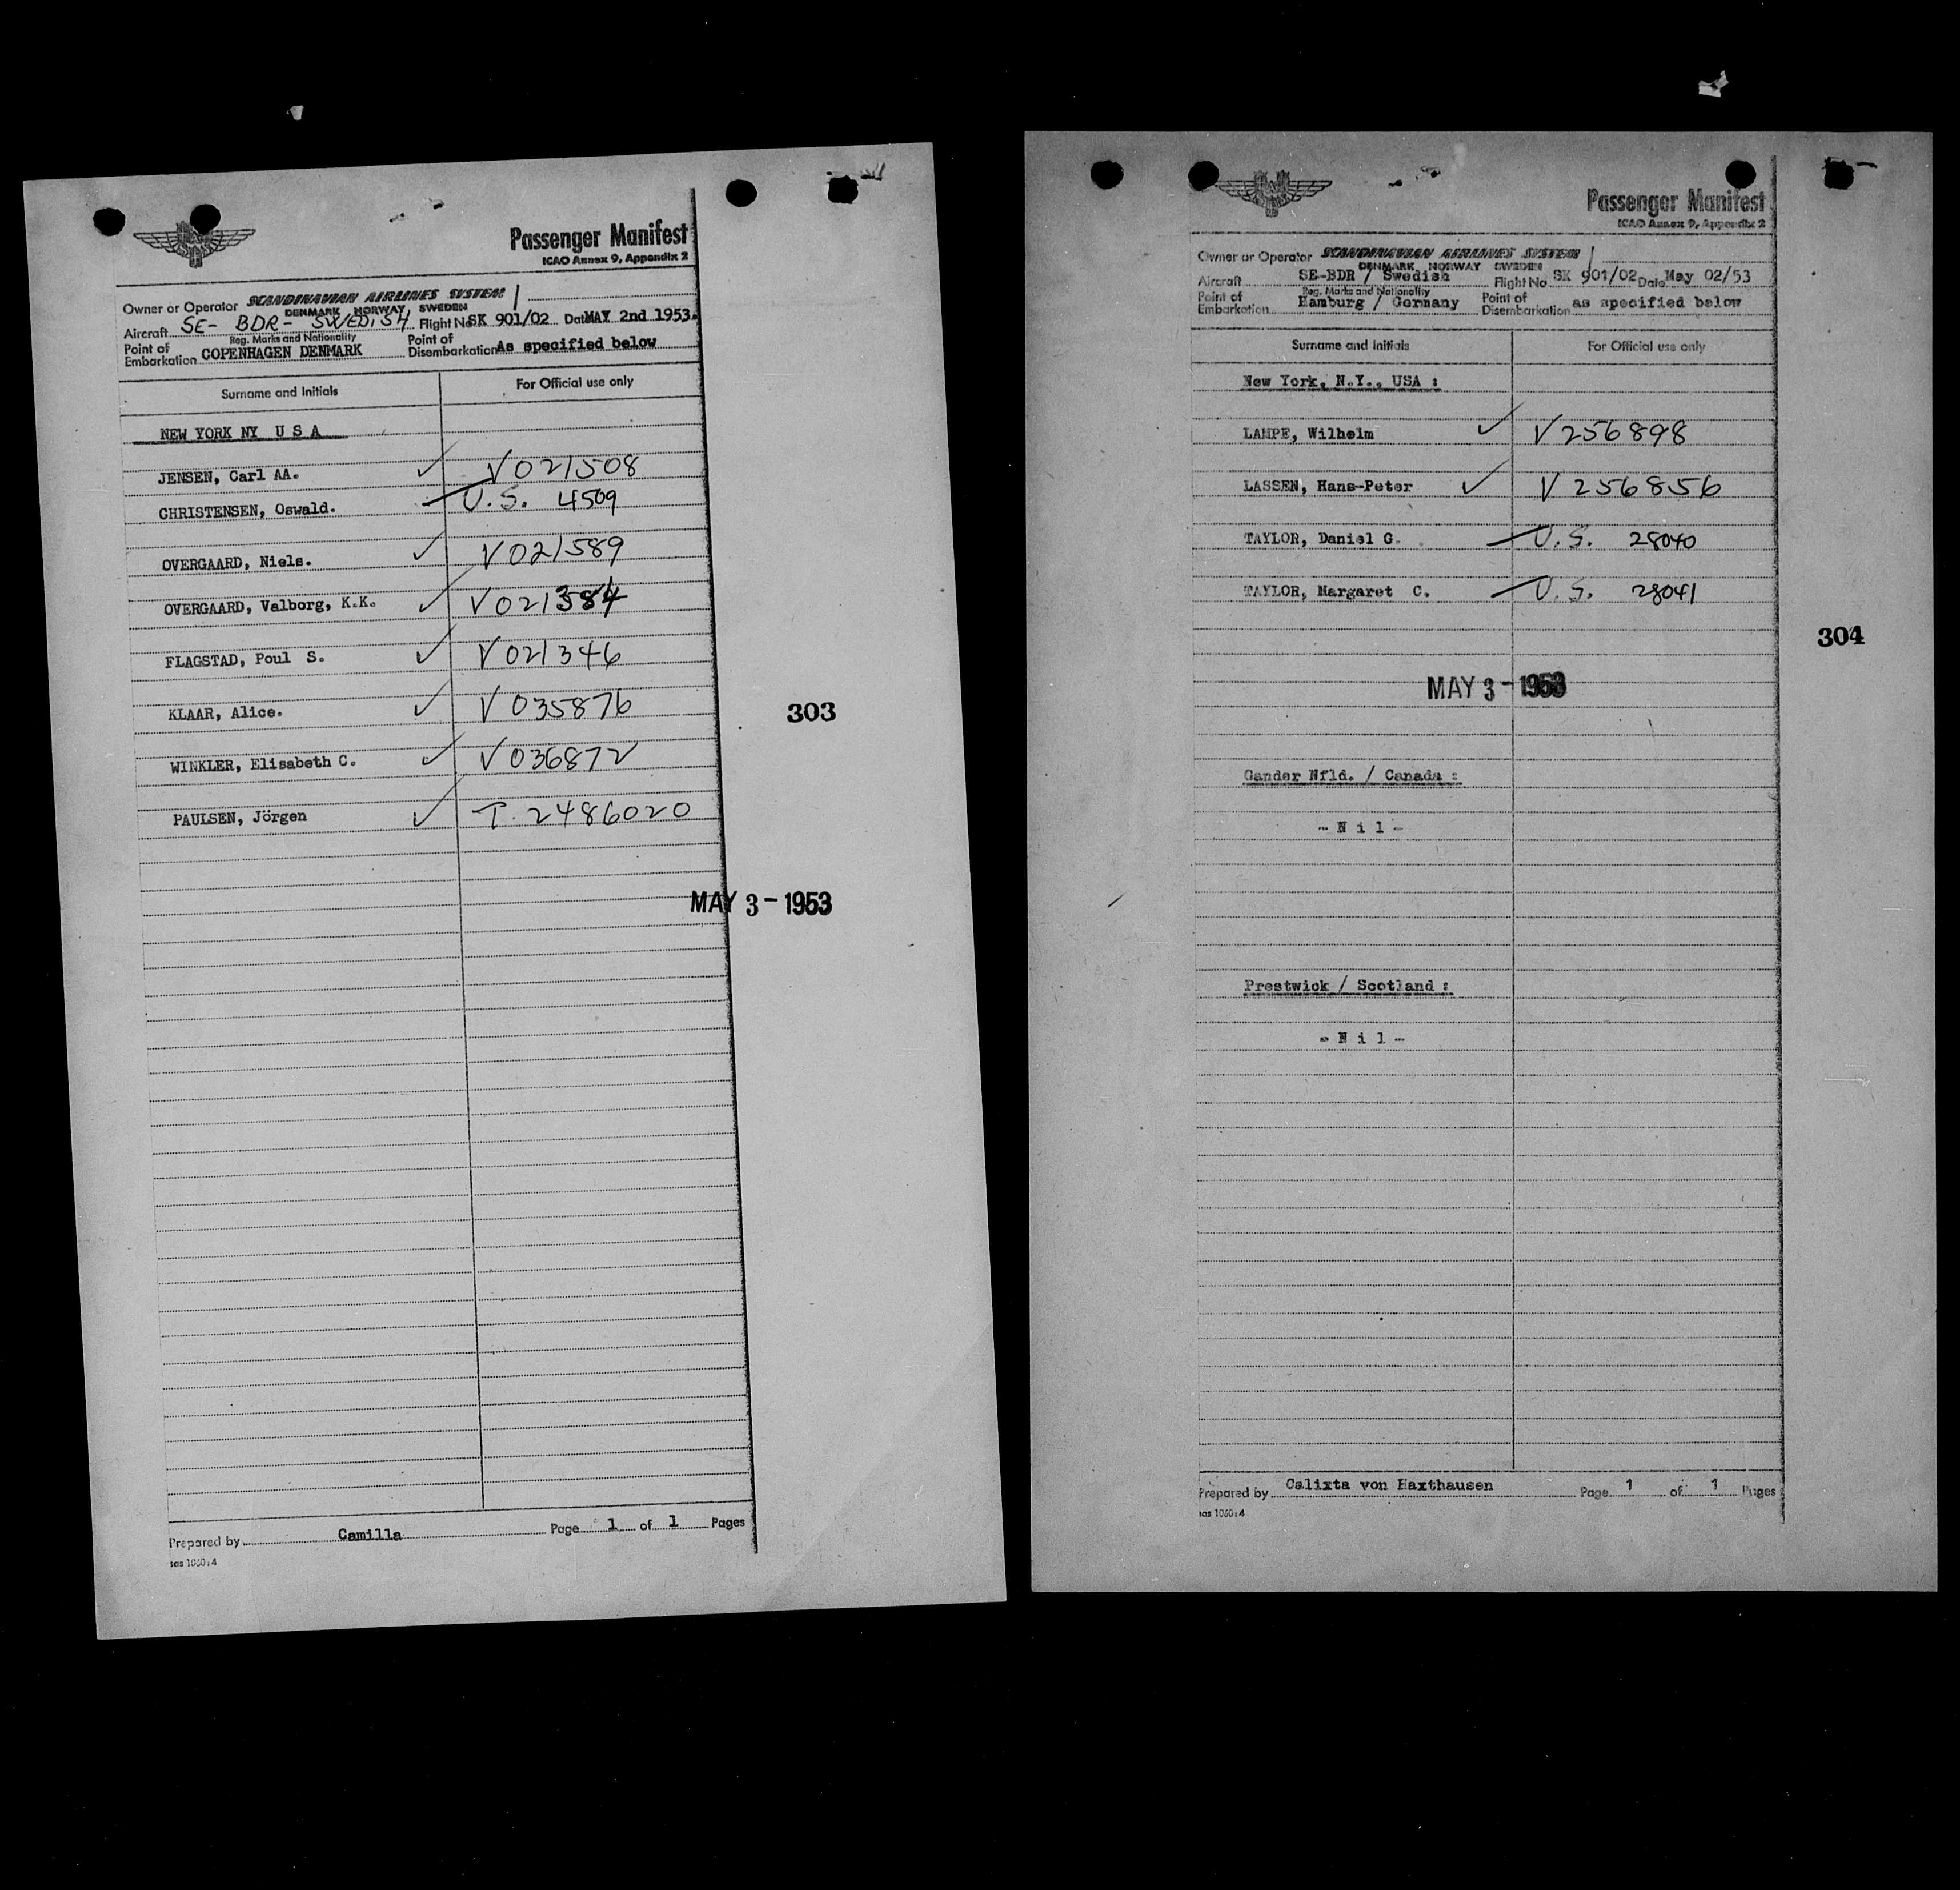 Passenger Manifest
ICAO Annex 9, Appendix 2
Owner or Operator SCANDINAVIAN AIRLINES SYSTEM
DENMARK NORWAY SWEDEN
Aircraft SE- BDR- SWEDISH Flight No SK 901/02 Date MAY 2nd 1953.
Reg. Marks and Nationality
Point of Embarkation COPENHAGEN DENMARK Point of Disembarkation As specified below
Surname and Initials For Official use only
NEW YORK NY U S A
JENSEN, Carl AA. V021508
CHRISTENSEN, Oswald. U.S. 4509
OVERGAARD, Niels. V021589
OVERGAARD, Valborg, K.K. V021384
FLAGSTAD, Poul S. V021346
KLAAR, Alice. V035876
303
WINKLER, Elisabeth C. V036872
PAULSEN, Jörgen T. 2486020
MAY 3 - 1953
Prepared by Camilla Page 1 of 1 Pages
sas 1060:4
Passenger Manifest
ICAO Annex 9, Appendix 2
Owner or Operator SCANDINAVIAN AIRLINES SYSTEM
DENMARK NORWAY SWEDEN
Aircraft SE-BDR / Swedish Flight No SK 901/02 Date May 02/53
Reg. Marks and Nationality
Point of Embarkation Hamburg / Germany Point of Disembarkation as specified below
Surname and Initials For Official use only
New York, N.Y., USA :
LAMPE, Wilhelm V256898
LASSEN, Hans-Peter V256856
TAYLOR, Daniel G. U.S. 28040
TAYLOR, Margaret C. U.S. 28041
304
MAY 3 - 1953
Gander Nfld. / Canada :
- N i l -
Prestwick / Scotland :
- N i l -
Prepared by Calixta von Haxthausen Page 1 of 1 Pages
sas 1060:4